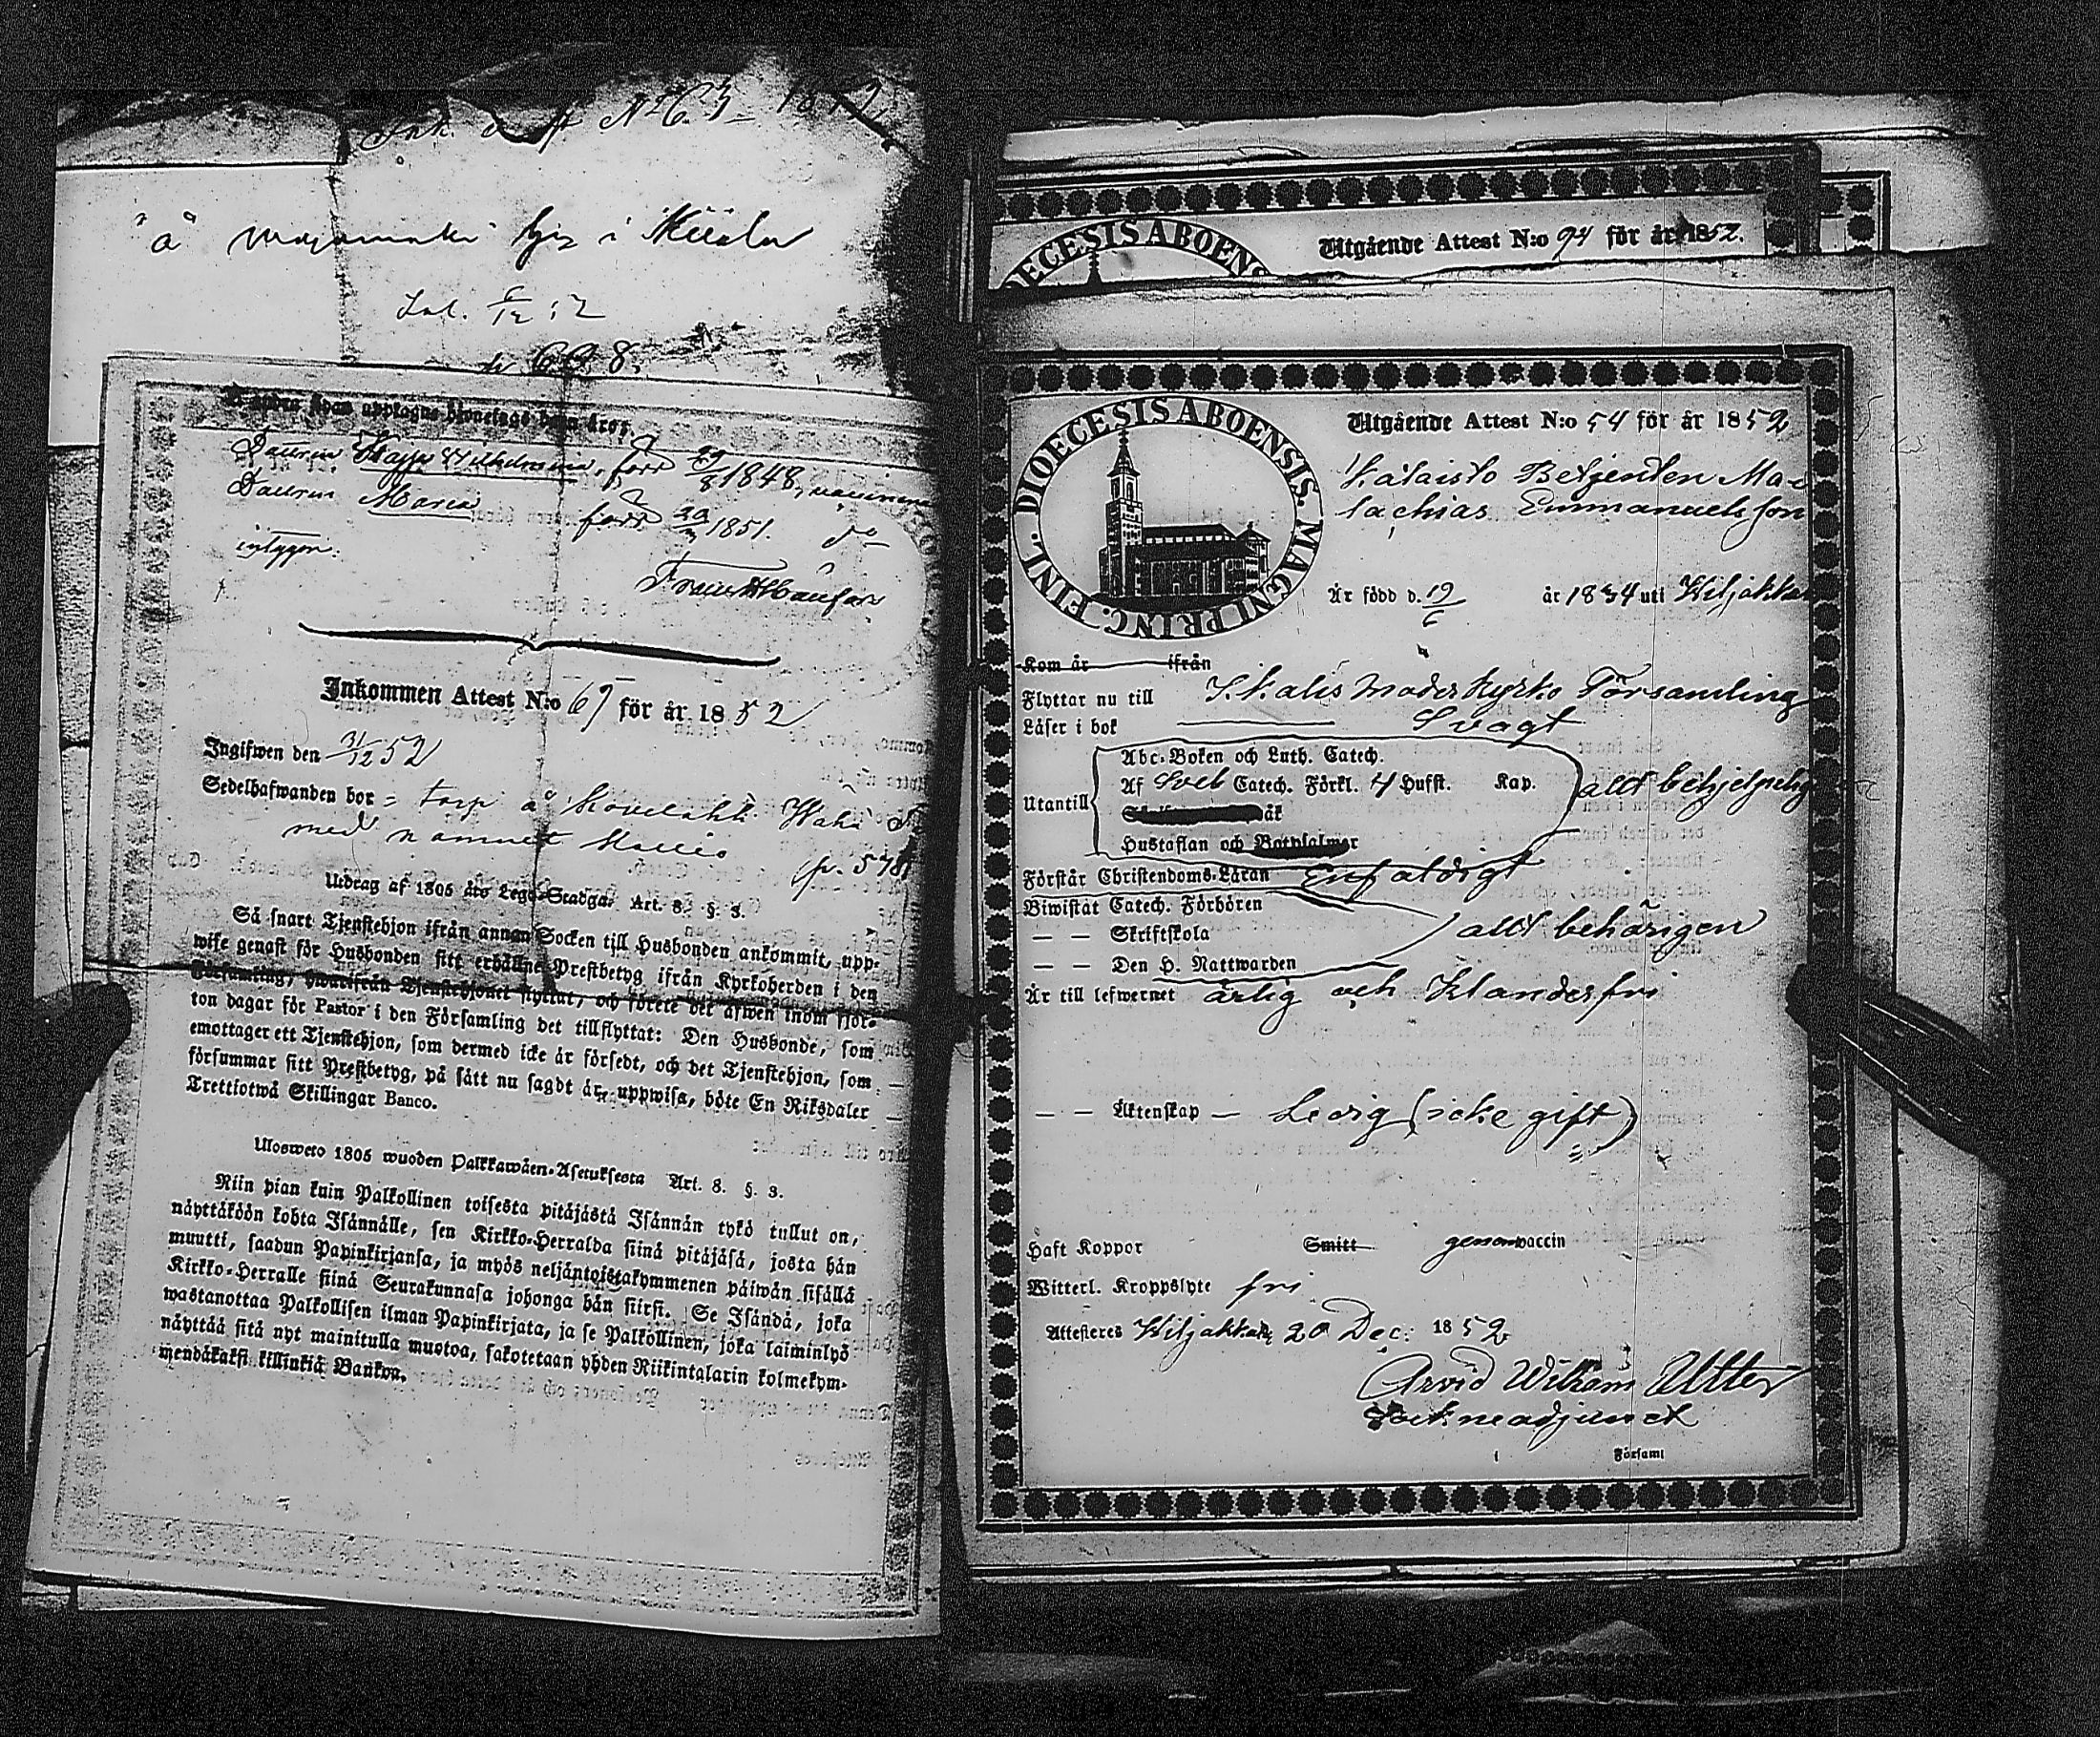 Ink. attest No 63 1852
"å" i
Ink. 6/12 52
Å andra sidan upptagne
Dottren Kajsa Wilhelmina, född 29/8 1848, vaccinerad
Dottren Maria född 1851. do
intygar:
Inkommen Attest N:o 65 för år 1852
Ingifwen den 31/12 52
Sedelhafwanden bor torp å
med namnet
p. 578
Utdrag af 1805 års Lego-Stadga. Art. 8. §. 3.
Så snart Tjenstehjon ifrån annan Socken till Husbonden ankommit, upp-
wise genast för Husbonden sitt erhållne Prestbetyg ifrån Kyrkoherden i den
Församling, hwarifrån Tjenstehjonet flyttat, och förete det äfwen inom fjor-
ton dagar för Pastor i den Församling det tillflyttat: Den Husbonde, som
emottager ett Tjenstehjon, som dermed icke är försedt, och det Tjenstehjon, som
försummar sitt Prestbetyg, på sätt nu sagdt är, uppwisa, böte En Riksdaler
Trettiotwå Skillingar Banco.
Ulosweto 1805 wuoden Palkkawäen-Asetuksesta Art. 8. §. 3.
Niin pian kuin Palkollinen toisesta pitäjästä Isännän tykö tullut on,
näyttäköön kohta Isännälle, sen Kirkko-Herralda siinä pitäjäsä, josta hän
muutti, saadun Papinkirjansa, ja myös neljäntoistakymmenen päiwän sisällä
Kirkko-Herralle siinä Seurakunnasa johonga hän siirsi. Se Isändä, joka
wastanottaa Palkollisen ilman Papinkirjata, ja se Palkollinen, joka laiminlyö
näyttää sitä nyt mainitulla muotoa, sakotetaan yhden Riikintalarin kolmekym-
mendäkaksi killinkiä Bankoa.
DIOECESIS ABOENS
Utgående Attest N:o 94 för år 1852.
DIOECESIS ABOENSIS. MAGNI PRINC. FINL.
Utgående Attest N:o 54 för år 1852
Kataisto Betjenten Ma-
lachias Emmanuelsson
Är född d. 19/6 år 1834 uti Kiljakkala
Kom år ifrån
Flyttar nu till Ikalis Moder Kyrko Församling
Läser i bok Svagt
Utantill
Abc-Boken och Luth. Catech.
Af Sveb Catech. Förkl. 4 Hufst. Kap. allt behjelpelig
Hustaflan och Botpsalmer
Förstår Christendoms-Läran Enfaldigt
Biwistat Catech. Förhören
— — Skriftskola allt behörigen
— — Den H. Nattwarden
Är till lefwernet ärlig och Klanderfri
— — Äktenskap — Ledig (icke gift)
Haft Koppor Smitt genom vaccin
Witterl. Kroppslyte fri
Attesteres Kiljakkala 20 Dec: 1852
Arvid Wilhelm Utter
Sockneadjunct
i Församl